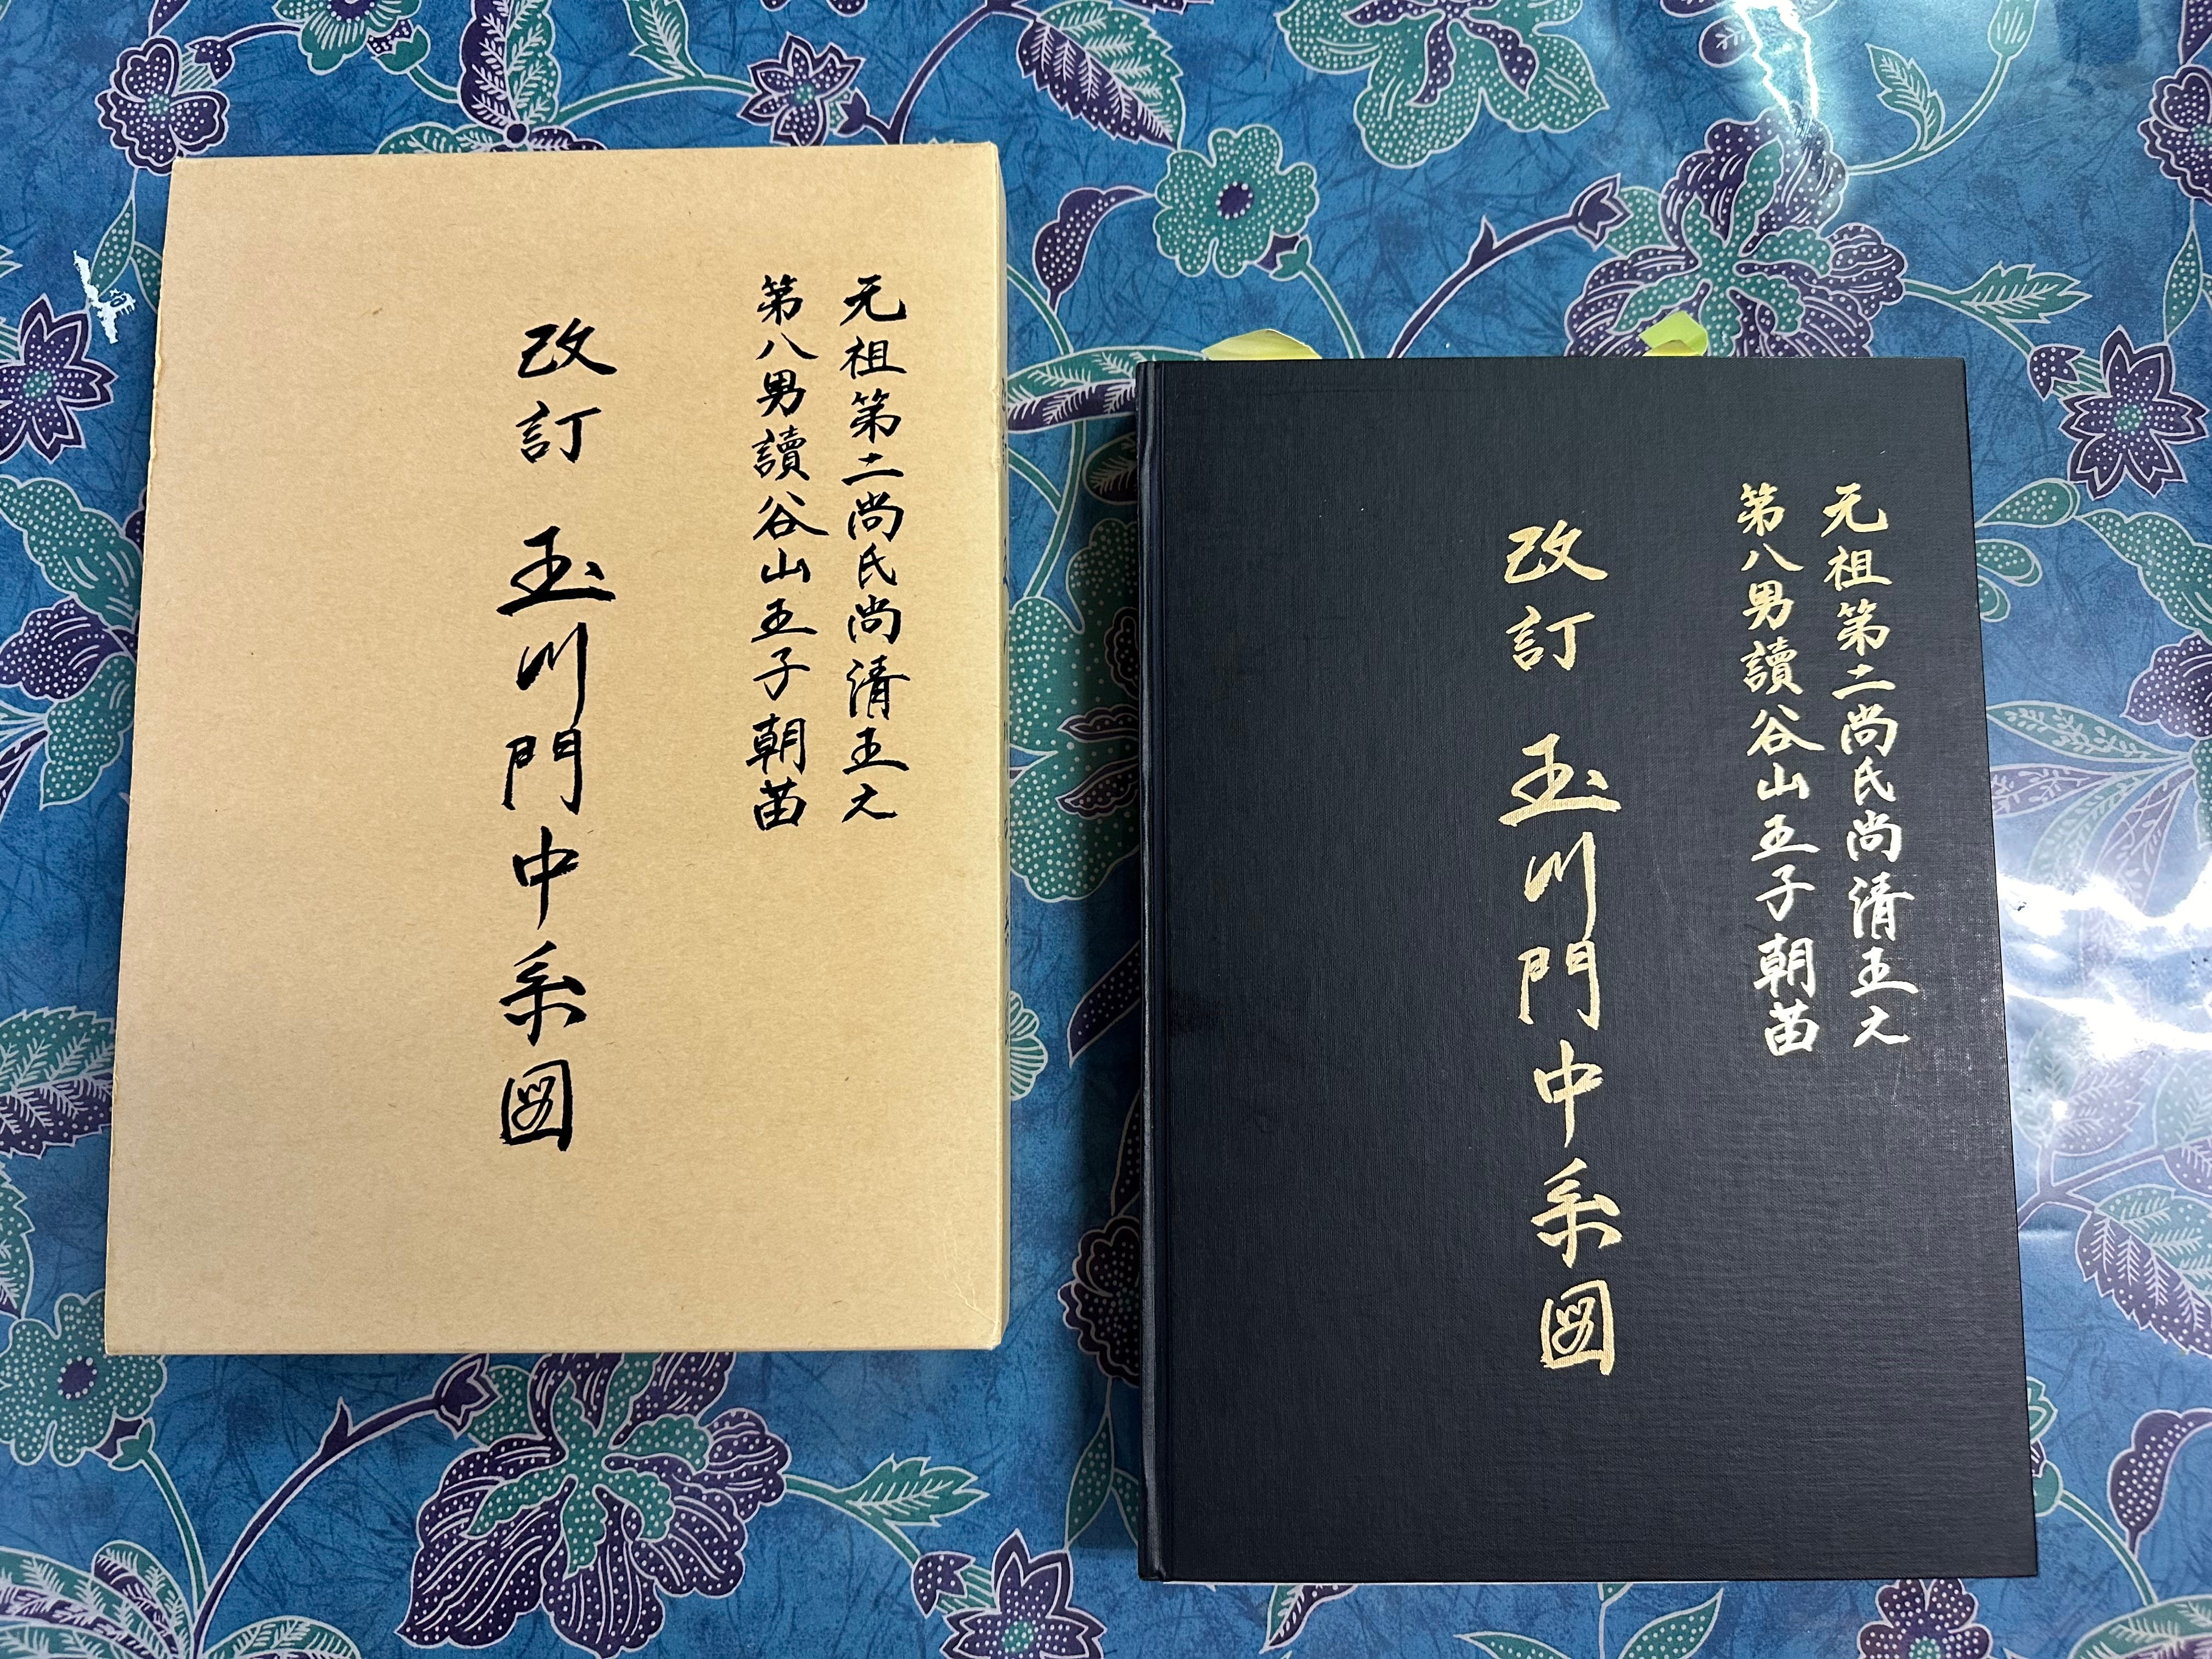 元祖第二尚氏尚清王之
第八男讀谷山王子朝苗
改訂 玉川門中系図
元祖第二尚氏尚清王之
第八男讀谷山王子朝苗
改訂 玉川門中系図